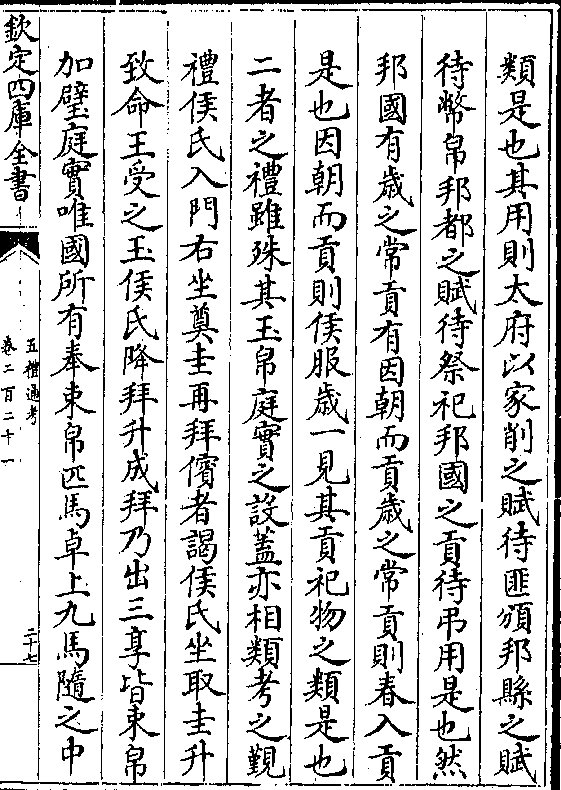 類是也其用則太府以家削之賦待匪頒邦縣之賦
待幣帛邦都之賦待祭祀邦國之貢待弔用是也然
邦國有歲之常貢有因朝而貢歲之常貢則春入貢
是也因朝而貢則侯服歲一見其貢祀物之類是也
二者之禮雖殊其玉帛庭實之設蓋亦相類考之覲
禮侯氏入門右坐奠圭再拜儐者謁侯氏坐取圭升
致命王受之玉侯氏降拜升成拜乃出三享皆束帛
加璧庭實唯國所有奉束帛匹馬卓上九馬隨之中
欽定四庫全書
五禮通考
卷二百二十一
二十七